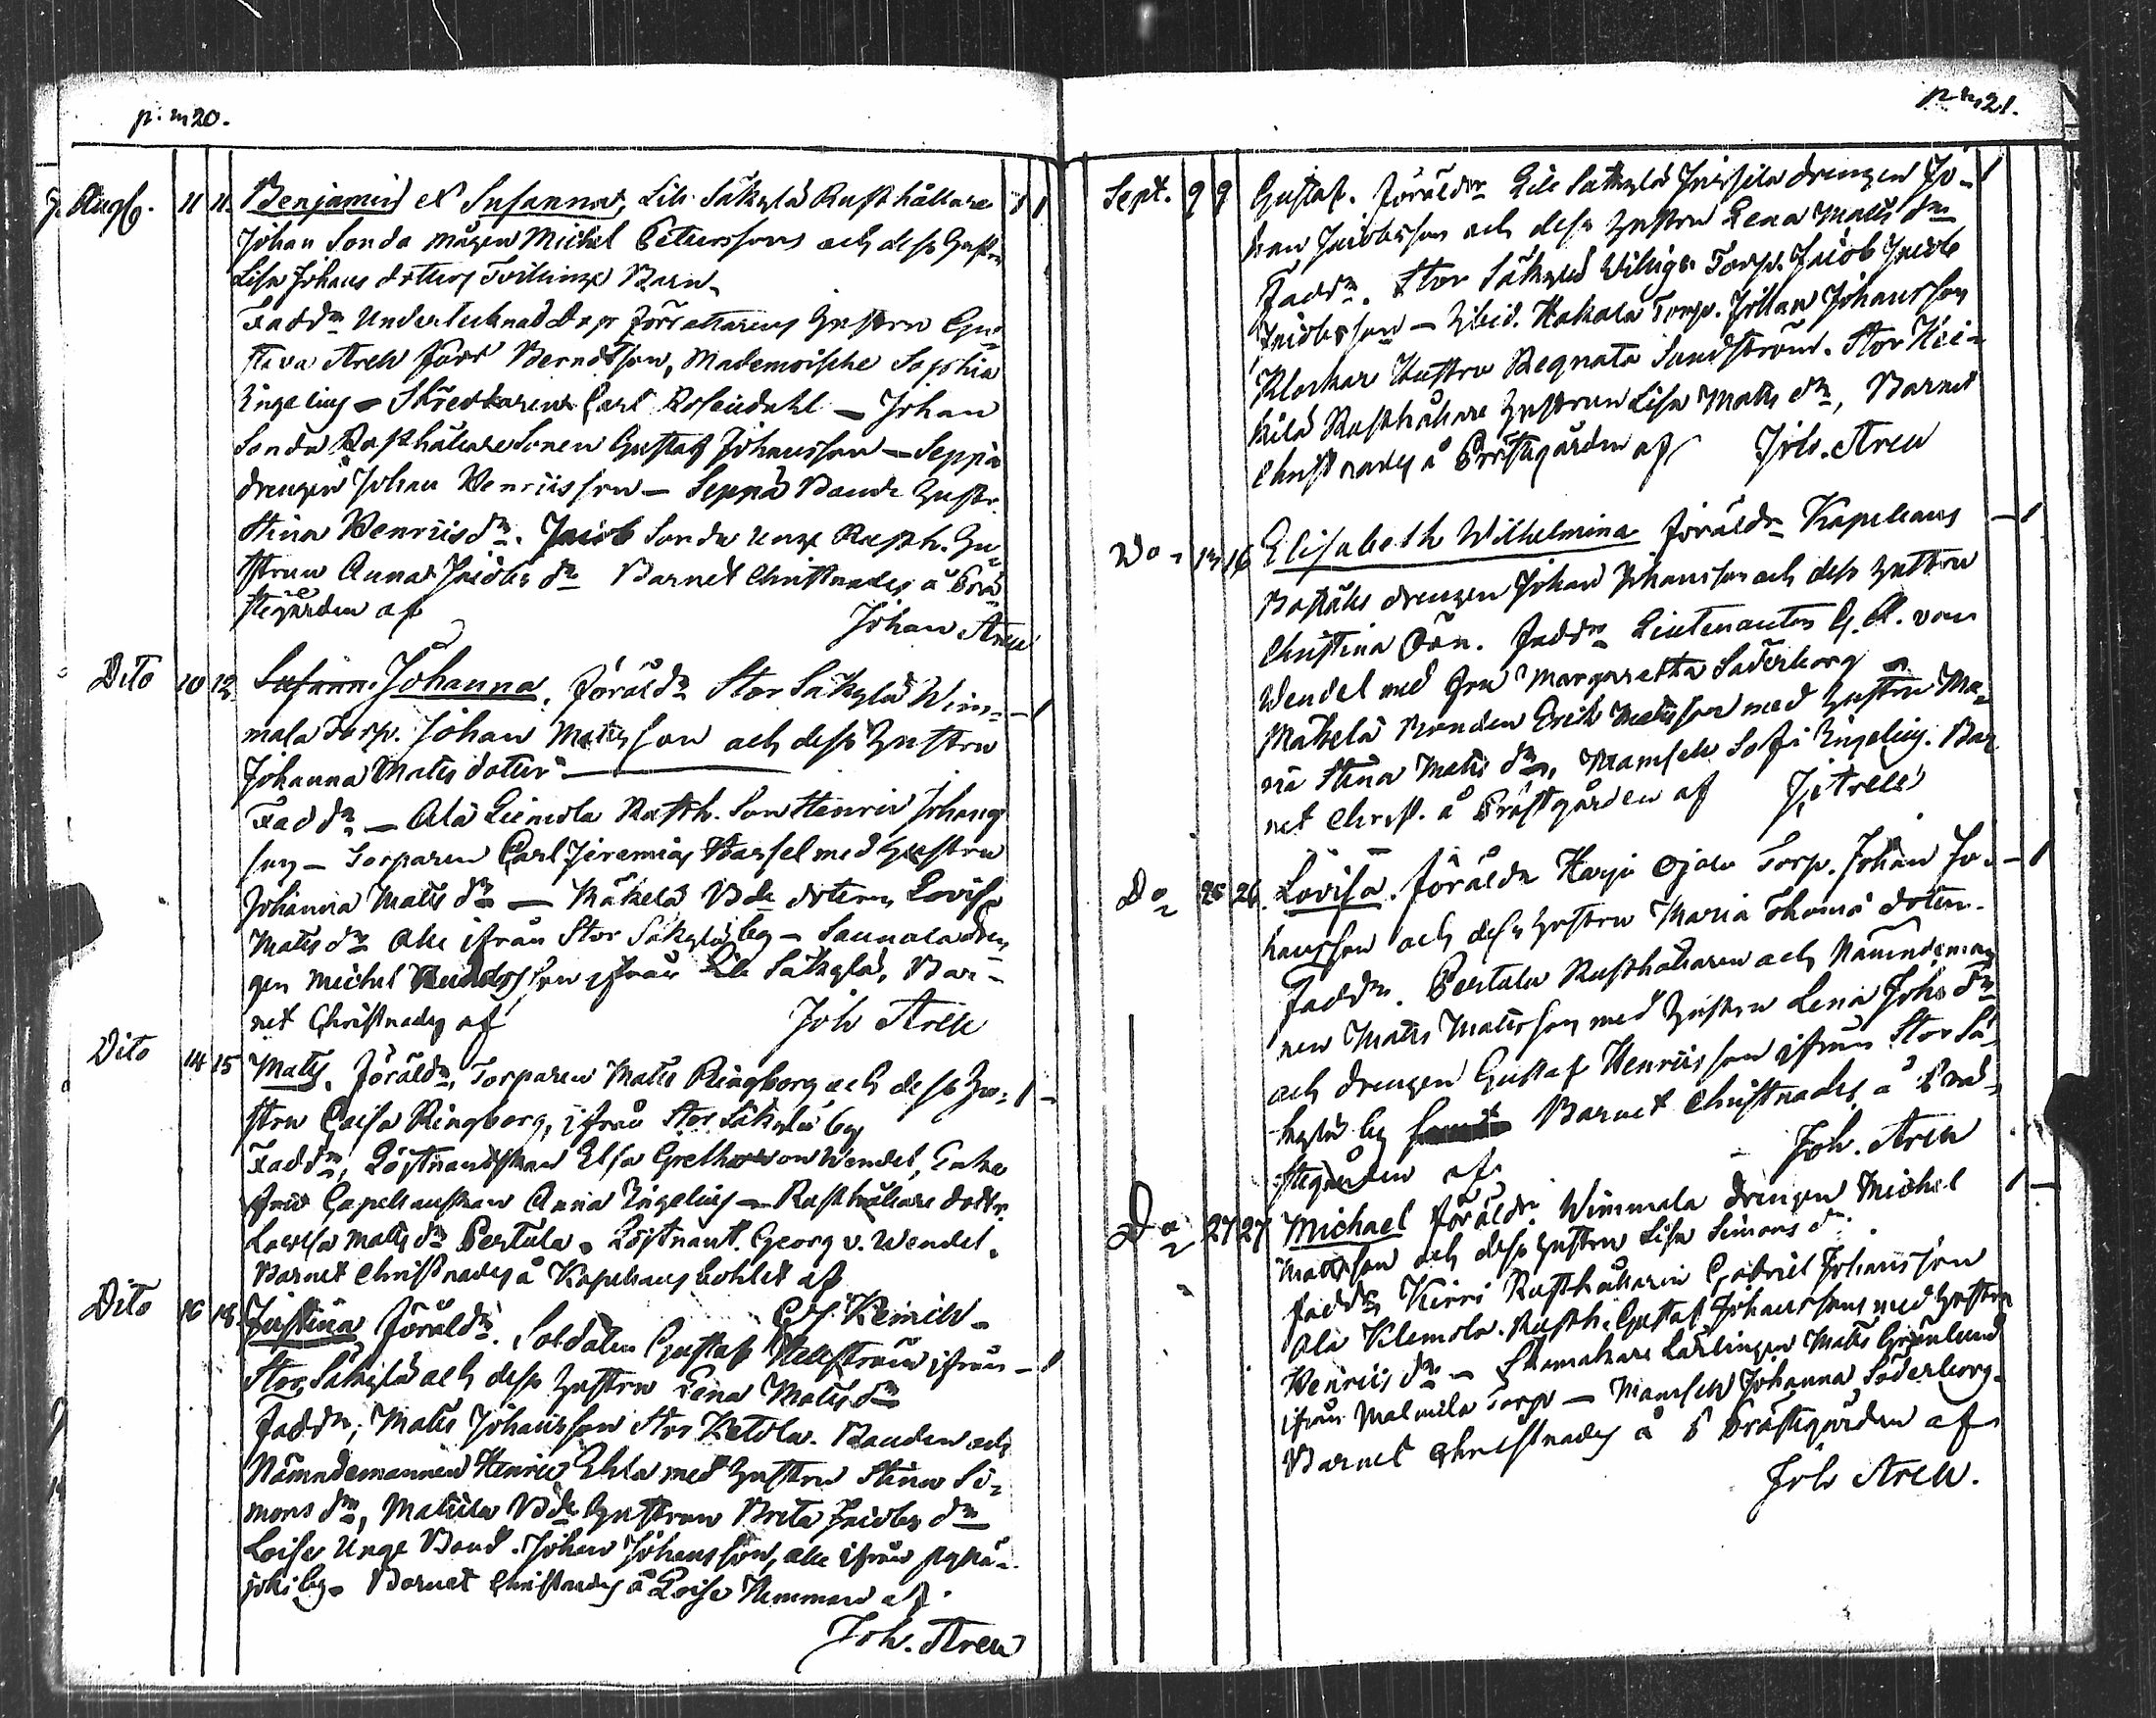 p. m 20.
Augs. 11 11. Benjamin et Susanna, Lill Säkylä Rusthållare
Johan Sonda mågen Michel Petterssons och dess Hustru
Lisa Johans dotters Tvillinge Barn.
Faddr Undertecknad Förrättarens Hustru Gu-
stava Aren född Berndtson, Mademoiselle Sophia
Ingelius - Carl Rosendahl - Johan
Sonda Rusthållare Sonen Gustaf Johansson - Seppä
drengen Johan Henricsson - Seppä Bonde Hustr.
Stina Henrics dr. Jacob Sonda unge Rusth. Hu-
struns Anna Jacobs dr Barnet Christnades å Prä-
stegården af
Johan Aren
Dito 10 12. Johanna. Föräldr Stor Säkylä Wim-
mala Torp. Johan Matsson och dess Hustru
Johanna Mats dotter
Faddr - Ala Rusth. Son Henric Johans
son - Torparen Carl Jeremias med Hustru
Johanna Mats dr - Mäkelä Bde dotern Lovisa
Mats dr Alle ifrån Stor Säkylä by - Saunala dren
gen Michel ifrån Lill Säkylä, Bar-
net Christnades af Joh Aren
Dito 14 15 Mats. Föräldr, Torparen Mats Ringborg och dess Hu-
stru Caisa Ringborg, ifrån Stor Säkylä by
Faddr, Löjtnantskan Elsa Greta von Wendel, Enke
frun Capellanskan Anna Ingelius - Rusthållare dotr.
Lovisa Mats dr Pertula. Löjtnant. Georg v. Wendel.
Barnet Christnades å Kapellans bohlet af
Dito 16 18. Justina Föräldr. Soldaten Gustaf Hellström ifrån
Stor Säkylä och dess Hustru Lena Mats dr
Faddr, Mats Johansson Stor Ketola. Bonden och
Nämndemannen Henric med Hustru Stina Si-
mons dr, Mattila Bde Hustrun Brita Jacobs dr
Loise Unge Bond. Johan Johansson, alle ifrån Pyhä-
joki by. Barnet Christnades å Loise Hemman af
Joh. Aren
p m 21.
Sept. 9 9 Gustaf. Föräldr Lill Säkylä drengen Jo-
han Jacobsson och dess Hustru Lena Mats dr
Faddr. Stor Säkylä Torp. Jacob Jacob
Jacobsson - Ibid. Hakala Torp. Johan Johansson
Klockare Hustru Regnata Sundström. Stor Kei-
kilä Rusthållare Hustrun Lisa Mats dr, Barnet
Christnades å Prästgården af Joh. Aren
Do 13 16 Elisabeth Wilhelmina Föräldr Kapellans
Boställs drengen Johan Johansson och dess Hustru
Christina Faddr Lieutenanten G. A. von
Wendel med Fru Margaretha Söderborg
Mäkelä Bonden Erik Matsson med Hustru Ma-
ria Stina Mats dr, Mamsell Sofi Ingelius. Bar
net Christ. å Prästgården af J. Aren
Do 25 26. Lovisa. Föräldr Harju Ojala Torp. Johan Jo-
hansson och dess Hustru Maria Thomä doter.
Faddr. Pertula Rusthållaren och Nämndeman
nen Mats Matsson med Hustru Lena Johs dr
och drengen Gustaf Henricsson ifrån Stor Sä-
kylä by Barnet Christnades å Prä-
stegården af Joh. Aren
Do 27 27 Michael Föräldr. Wimmala drengen Michel
Mattsson och dess Hustru Lisa Simons dr
Faddr, Kirri Rusthållaren Gabriel Johansson
Ala Klemola Rusth. Gustaf Johansson med Hustru
Henrics dr - Skomakare Lärlingen Mats Grönlund
ifrån Torp - Mamsell Johanna Söderborg
Barnet Christnades å Prästegården af
Joh Aren.